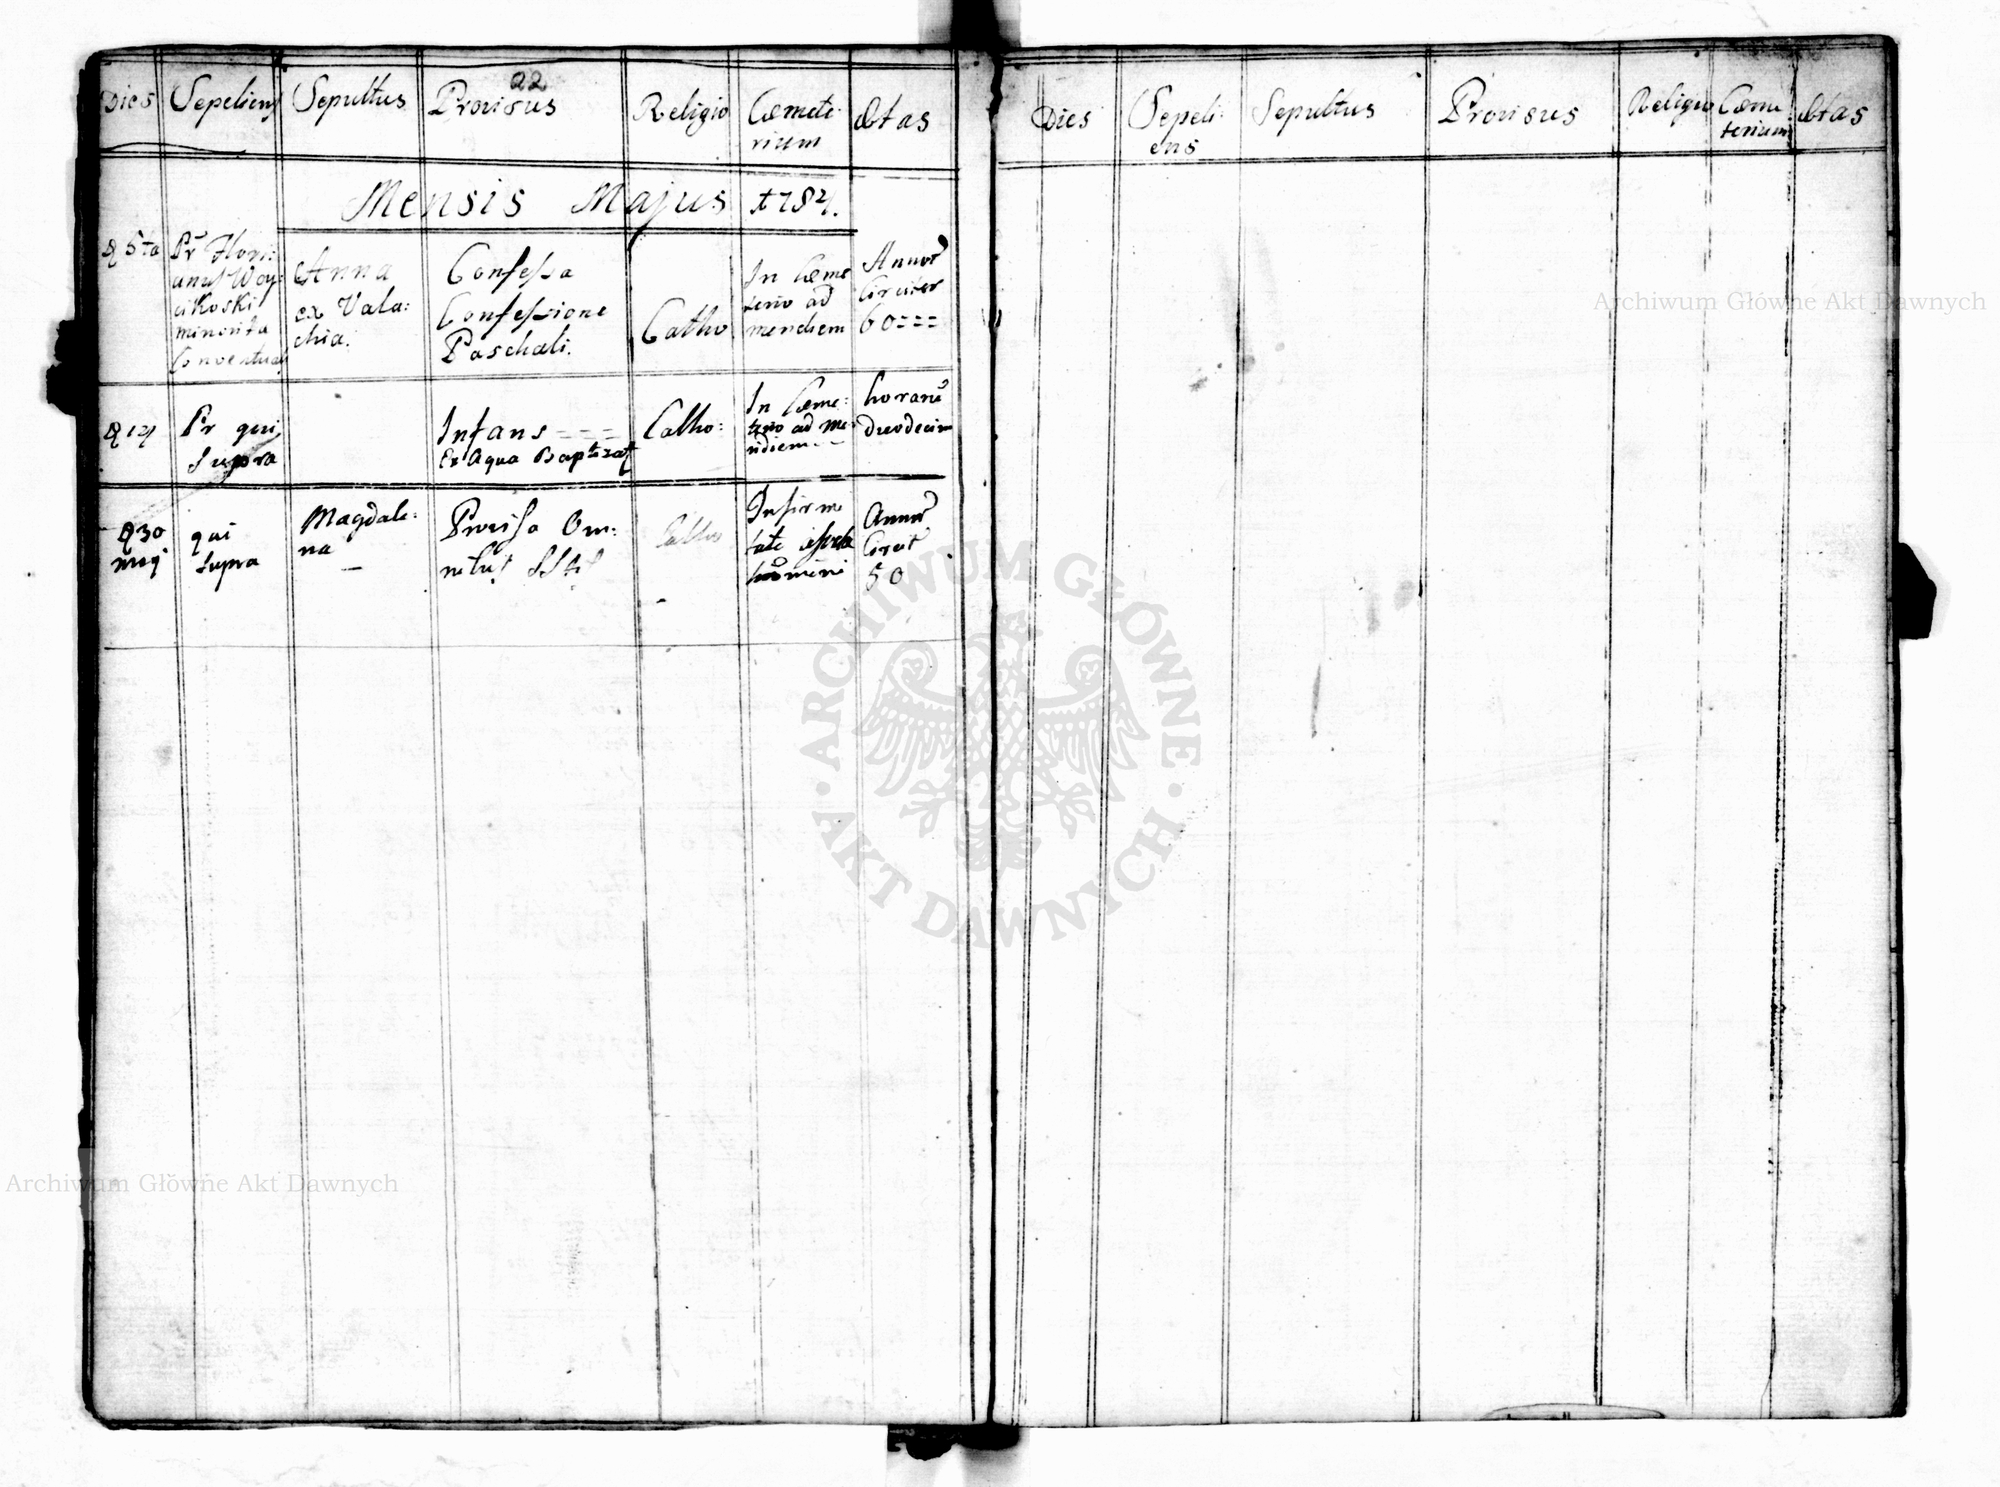 22
Dies Sepeliens Sepultus Provisus Religio Cœmete
rium Ætas
Mensis Majus 1784.
D 5ta
Pr Flori
anus Woy:
cikoski
minorita
Conventual
Anna
ex Vala:
chia.
Confessa
Confessione
Paschali.
Catho
In Cœme
terio ad
meridiem
Annor
Circiter
60===
D 14
Pr qui
supra
Infans ===
Ex Aqua Baptizat
Catho:
In Cœme:
terio ad me
ridiem
horarum
duodecim
D 30
qui
supra
Magdale:
na
Provisa Om:
nibus
Catho
Infirmi
tate
Annor
Circit
50
Dies Sepeli:
ens Sepultus Provisus Religio Cœme
terium Ætas
Archiwum Główne Akt Dawnych
ARCHIWUM GŁÓWNE · AKT DAWNYCH ·
Archiwum Główne Akt Dawnych